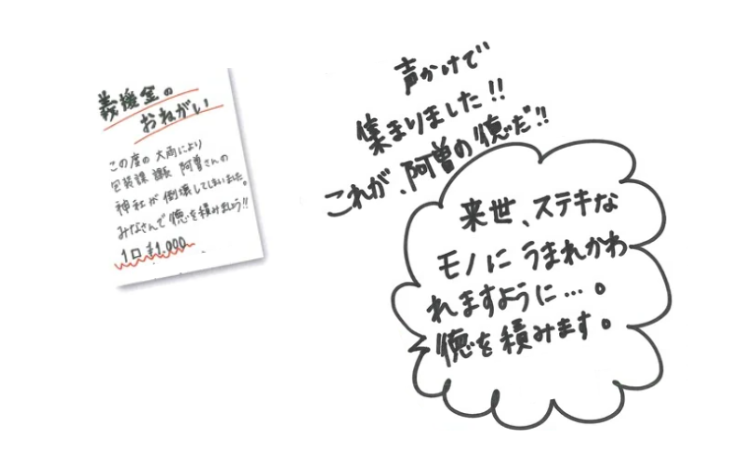 義援金の
おねがい
この度の大雨により
包装課 課長 阿曽さんの
神社が倒壊してしまいました。
みなさんで徳を積み出よう!!
1口 ¥1,000
声かけで
集まりました!!
これが、阿曽の徳だ!!
来世、ステキな
モノに うまれかわ
れますように…。
徳を積みます。